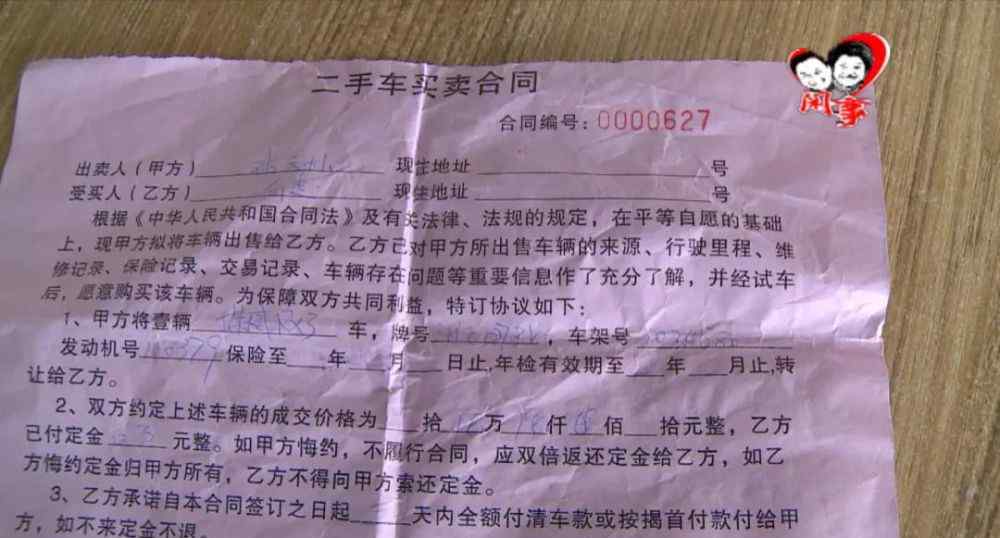 闲事
二手车买卖合同
合同编号：0000627
出卖人（甲方） 现住地址 号
受买人（乙方） 现住地址 号
根据《中华人民共和国合同法》及有关法律、法规的规定，在平等自愿的基础
上，现甲方拟将车辆出售给乙方。乙方已对甲方所出售车辆的来源、行驶里程、维
修记录、保险记录、交易记录、车辆存在问题等重要信息作了充分了解，并经试车
后，愿意购买该车辆。为保障双方共同利益，特订协议如下：
1、甲方将壹辆 车，牌号 ，车架号
发动机号 保险至 年 月 日止，年检有效期至 年 月止，转
让给乙方。
2、双方约定上述车辆的成交价格为 拾 万 仟 佰 拾元整，乙方
已付定金 元整。如甲方悔约，不履行合同，应双倍返还定金给乙方，如乙
方悔约定金归甲方所有，乙方不得向甲方索还定金。
3、乙方承诺自本合同签订之日起 天内全额付清车款或按揭首付款付给甲
方，如不来定金不退。